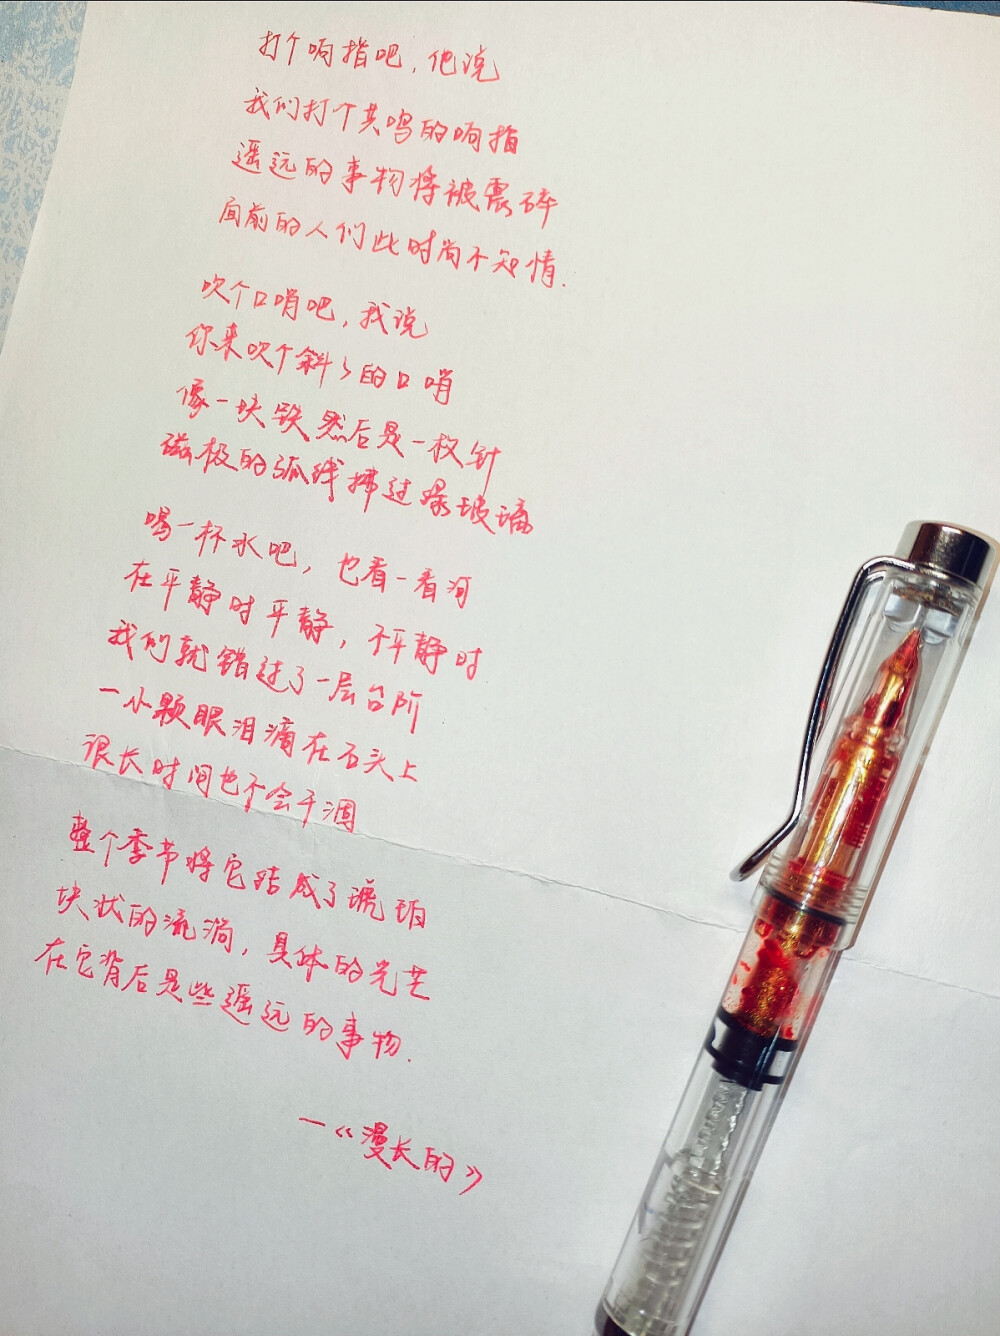 打个响指吧，他说
我们打个共鸣的响指
遥远的事物将被震碎
面前的人们此时尚不知情.
吹个口哨吧，我说
你来吹个斜斜的口哨
像一块铁然后是一枚针
磁极的弧线拂过绿玻璃
喝一杯水吧，也看一看河
在平静时平静，不平静时
我们就错过了一层台阶
一小颗眼泪滴在石头上
很长时间也不会干涸
整个季节将它结成了琥珀
块状的流淌，具体的光芒
在它背后是些遥远的事物.
—《漫长的》